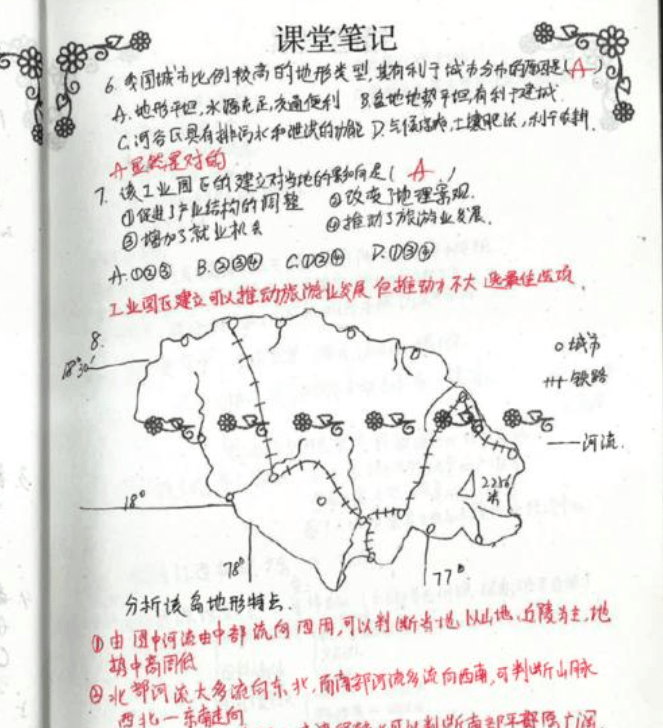 课堂笔记
6. 我国城市比例较高的地形类型,其有利于城市分布的原因是(A)
A. 地形平坦,水源充足,交通便利 B.盆地地势平坦,有利于建城.
C.河谷区具有排污水和泄洪的功能 D.气候温和,土壤肥沃,利于农耕.
A显然是对的
7. 该工业园区的建立对当地的影响是( A. )
①促进了产业结构的调整 ②改变了地理景观.
③增加了就业机会 ④推动了旅游业发展.
A.①②③ B.②③④ C.①②④ D.①③④
工业园区建立可以推动旅游业发展 但推动力不大 选最佳选项.
8.
18°30′
城市
铁路
河流.
2286
米
18°
78°
77°
分析该岛地形特点.
①由图中河流由中部流向四周,可以判断当地以山地、丘陵为主,地
势中高周低
②北部河流大多流向东北,而南部河流多流向西南,可判断山脉
西北一东南走向